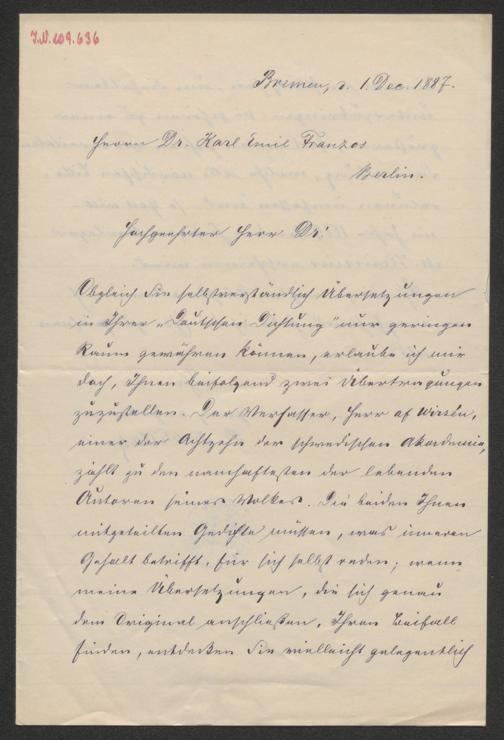 I.N. 109.636
Bremen, d. 1. Dec. 1887.
Herrn Dr. Karl Emil Franzos
Berlin.
Hochgeehrter Herr Dr.!
Obgleich Sie selbstverständlich Übersetzungen
in Ihrer „Deutschen Dichtung" nur geringen
Raum gewähren können, erlaube ich mir
doch, Ihnen beifolgend zwei Übertragungen
zuzustellen. Der Verfasser, Herr af Wirsén,
einer der Achtzehn der schwedischen Akademie,
zählt zu den namhaftesten der lebenden
Autoren seines Volkes. Die beiden Ihnen
mitgeteilten Gedichte müssen, was inneren
Gehalt betrifft, für sich selbst reden; wenn
meine Übersetzungen, die sich genau
dem Original anschließen, Ihren Beifall
finden, entdecken Sie vielleicht gelegentlich